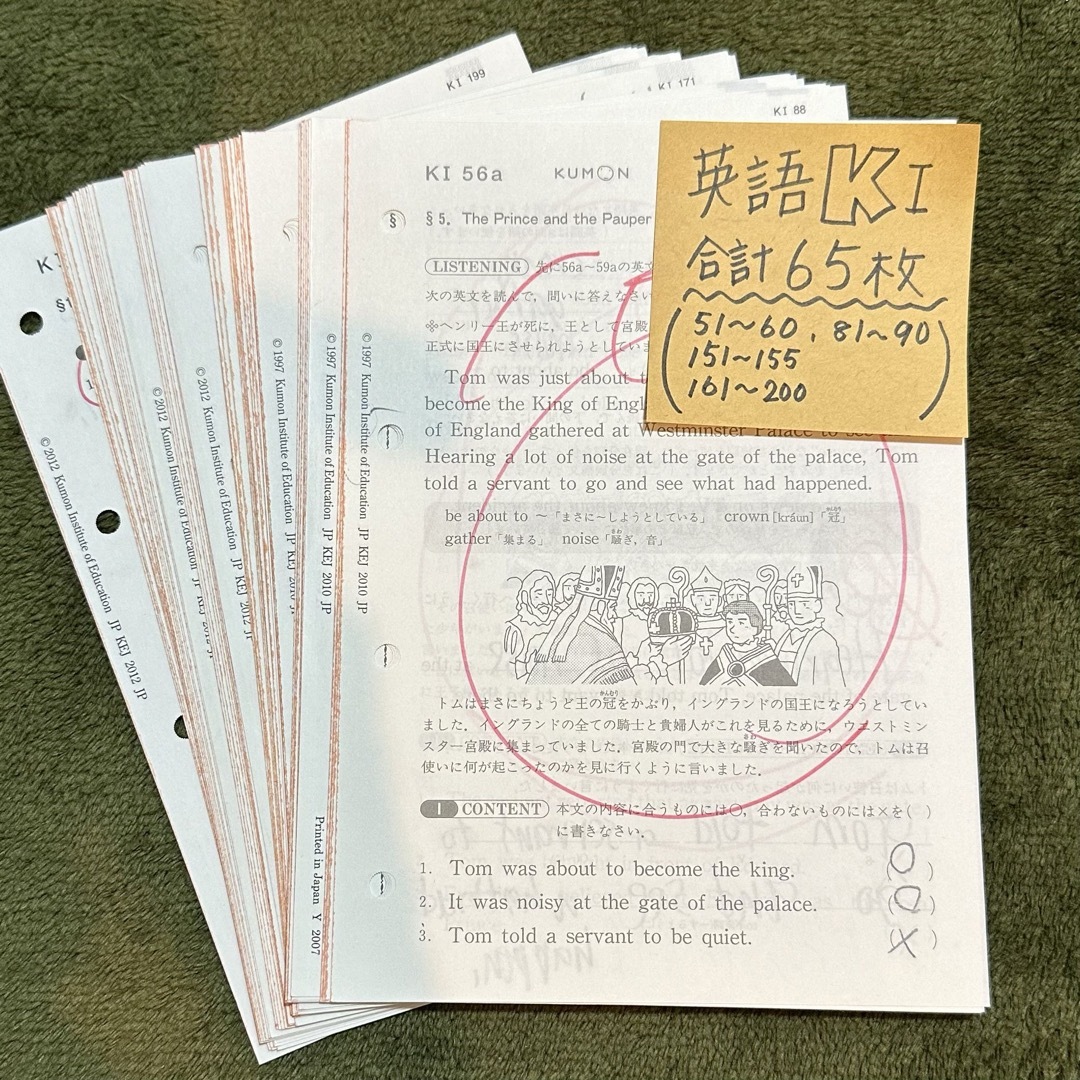 KI 199
KI 171
KI 88
英語KI
合計65枚
51〜60, 81〜90
151〜155
161〜200
KI 56a KUMON
§ §5. The Prince and the Pauper
LISTENING 先に56a〜59aの英文
次の英文を読んで，問いに答えなさい
※ヘンリー王が死に，王として宮殿
正式に国王にさせられようとしていま
Tom was just about t
become the King of Engl
of England gathered at Westminster Palace to see
Hearing a lot of noise at the gate of the palace, Tom
told a servant to go and see what had happened.
be about to 〜「まさに〜しようとしている」 crown [kráun]「冠」
gather「集まる」 noise「騒ぎ，音」
トムはまさにちょうど王の冠をかぶり，イングランドの国王になろうとしてい
ました．イングランドの全ての騎士と貴婦人がこれを見るために，ウエストミン
スター宮殿に集まっていました．宮殿の門で大きな騒ぎを聞いたので，トムは召
使いに何が起こったのかを見に行くように言いました．
I CONTENT 本文の内容に合うものには○，合わないものには×を( )
に書きなさい．
1. Tom was about to become the king. (○)
2. It was noisy at the gate of the palace. (○)
3. Tom told a servant to be quiet. (×)
© 1997 Kumon Institute of Education JP KEJ 2010 JP
© 1997 Kumon Institute of Education JP KEJ 2010 JP
© 1997 Kumon Institute of Education JP KEJ 2010 JP
© 2012 Kumon Institute of Education JP KEJ 2012 JP
© 2012 Kumon Institute of Education JP KEJ 2012 JP
© 2012 Kumon Institute of Education JP KEJ 2012 JP
Printed in Japan Y 2007